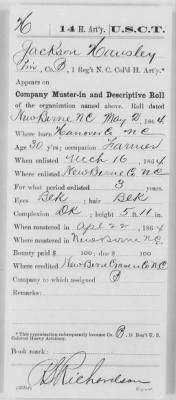 H | 14 H. Art'y. | U.S.C.T.
Jackson Hawsley
Pvt, Co. B, 1 Reg't N. C. Col'd H. Art'y.*
Appears on
Company Muster-in and Descriptive Roll
of the organization named above. Roll dated
New Berne NC May 2, 1864
Where born Hanover Co NC
Age 30 y'rs; occupation Farmer
When enlisted Mch 16, 1864
Where enlisted New Berne NC
For what period enlisted 3 years.
Eyes Blk; hair Blk
Complexion Dk; height 5 ft. 11 in.
When mustered in Apl 22, 1864
Where mustered in New Berne NC
Bounty paid $ 100; due $ 100
Where credited New Berne Craven Co NC
Company to which assigned B
Remarks:
*This organization subsequently became Co. B, 14 Reg't U. S.
Colored Heavy Artillery.
Book mark:
Richardson